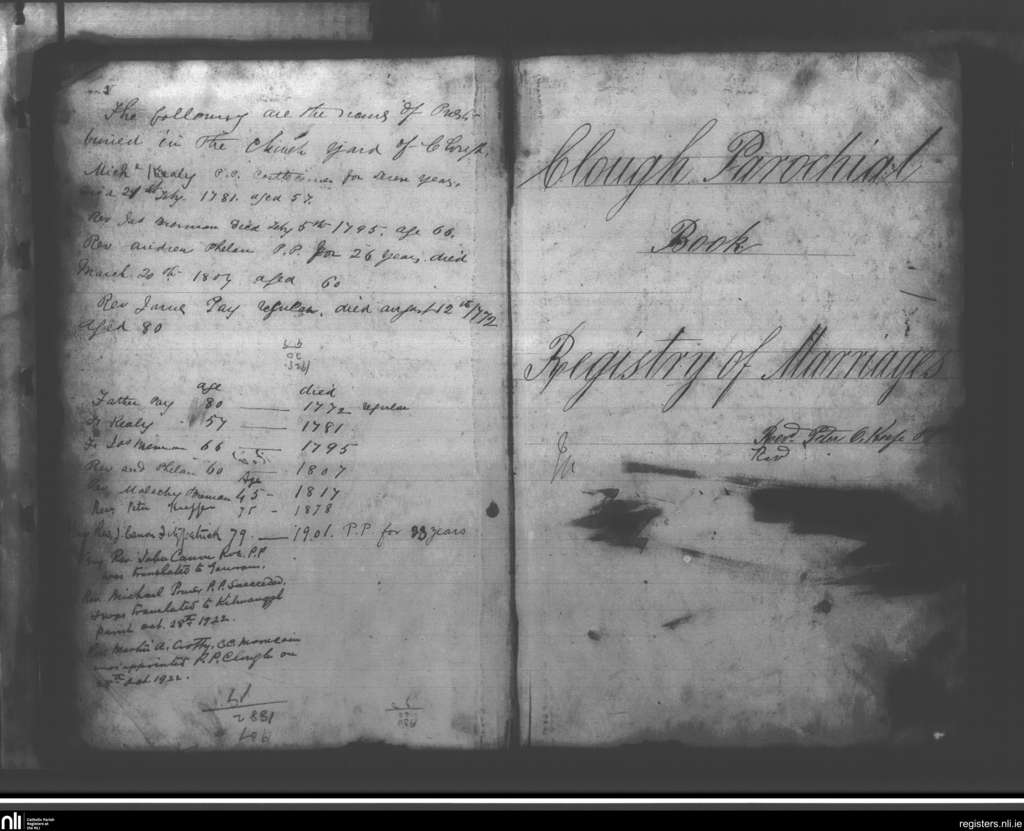 The following are the names of Priests
buried in the Church yard of Clough.
Mich Kealy P.P. for seven years,
died 21st Feby. 1781. aged 57.
Rev Jas Brennan died Feby 5th 1795. age 66.
Rev Andrew Phelan P.P. for 26 years died
March 20th 1807 aged 60
Rev James Pay regular, died august 12th 1772
aged 80
age died
Father Pay 80 — 1772 regular
Fr Kealy 57 — 1781
Fr Jas Brennan 66 — 1795
Rev and Phelan 60 — 1807
Age
Rev Malachy Brennan 45 — 1817
Rev Peter 75 — 1878
Rev J. Canon Fitzpatrick 79. — 1901. P.P. for 33 years
Very Rev John Canon Roe. P.P.
was translated to Gowran.
Rev. Michael Power P.P. Succeeded.
& was translated to Kilmanagh
Parish Oct. 28th 1922.
Rev Martin A. Crotty, C.C. Mooncoin
was appointed P.P. Clough on
28th Oct 1922.
1882
Clough Parochial
Book
Registry of Marriages
Revd. Peter O.Keefe
Revd
nli
Catholic Parish
Registers at
the NLI
registers.nli.ie